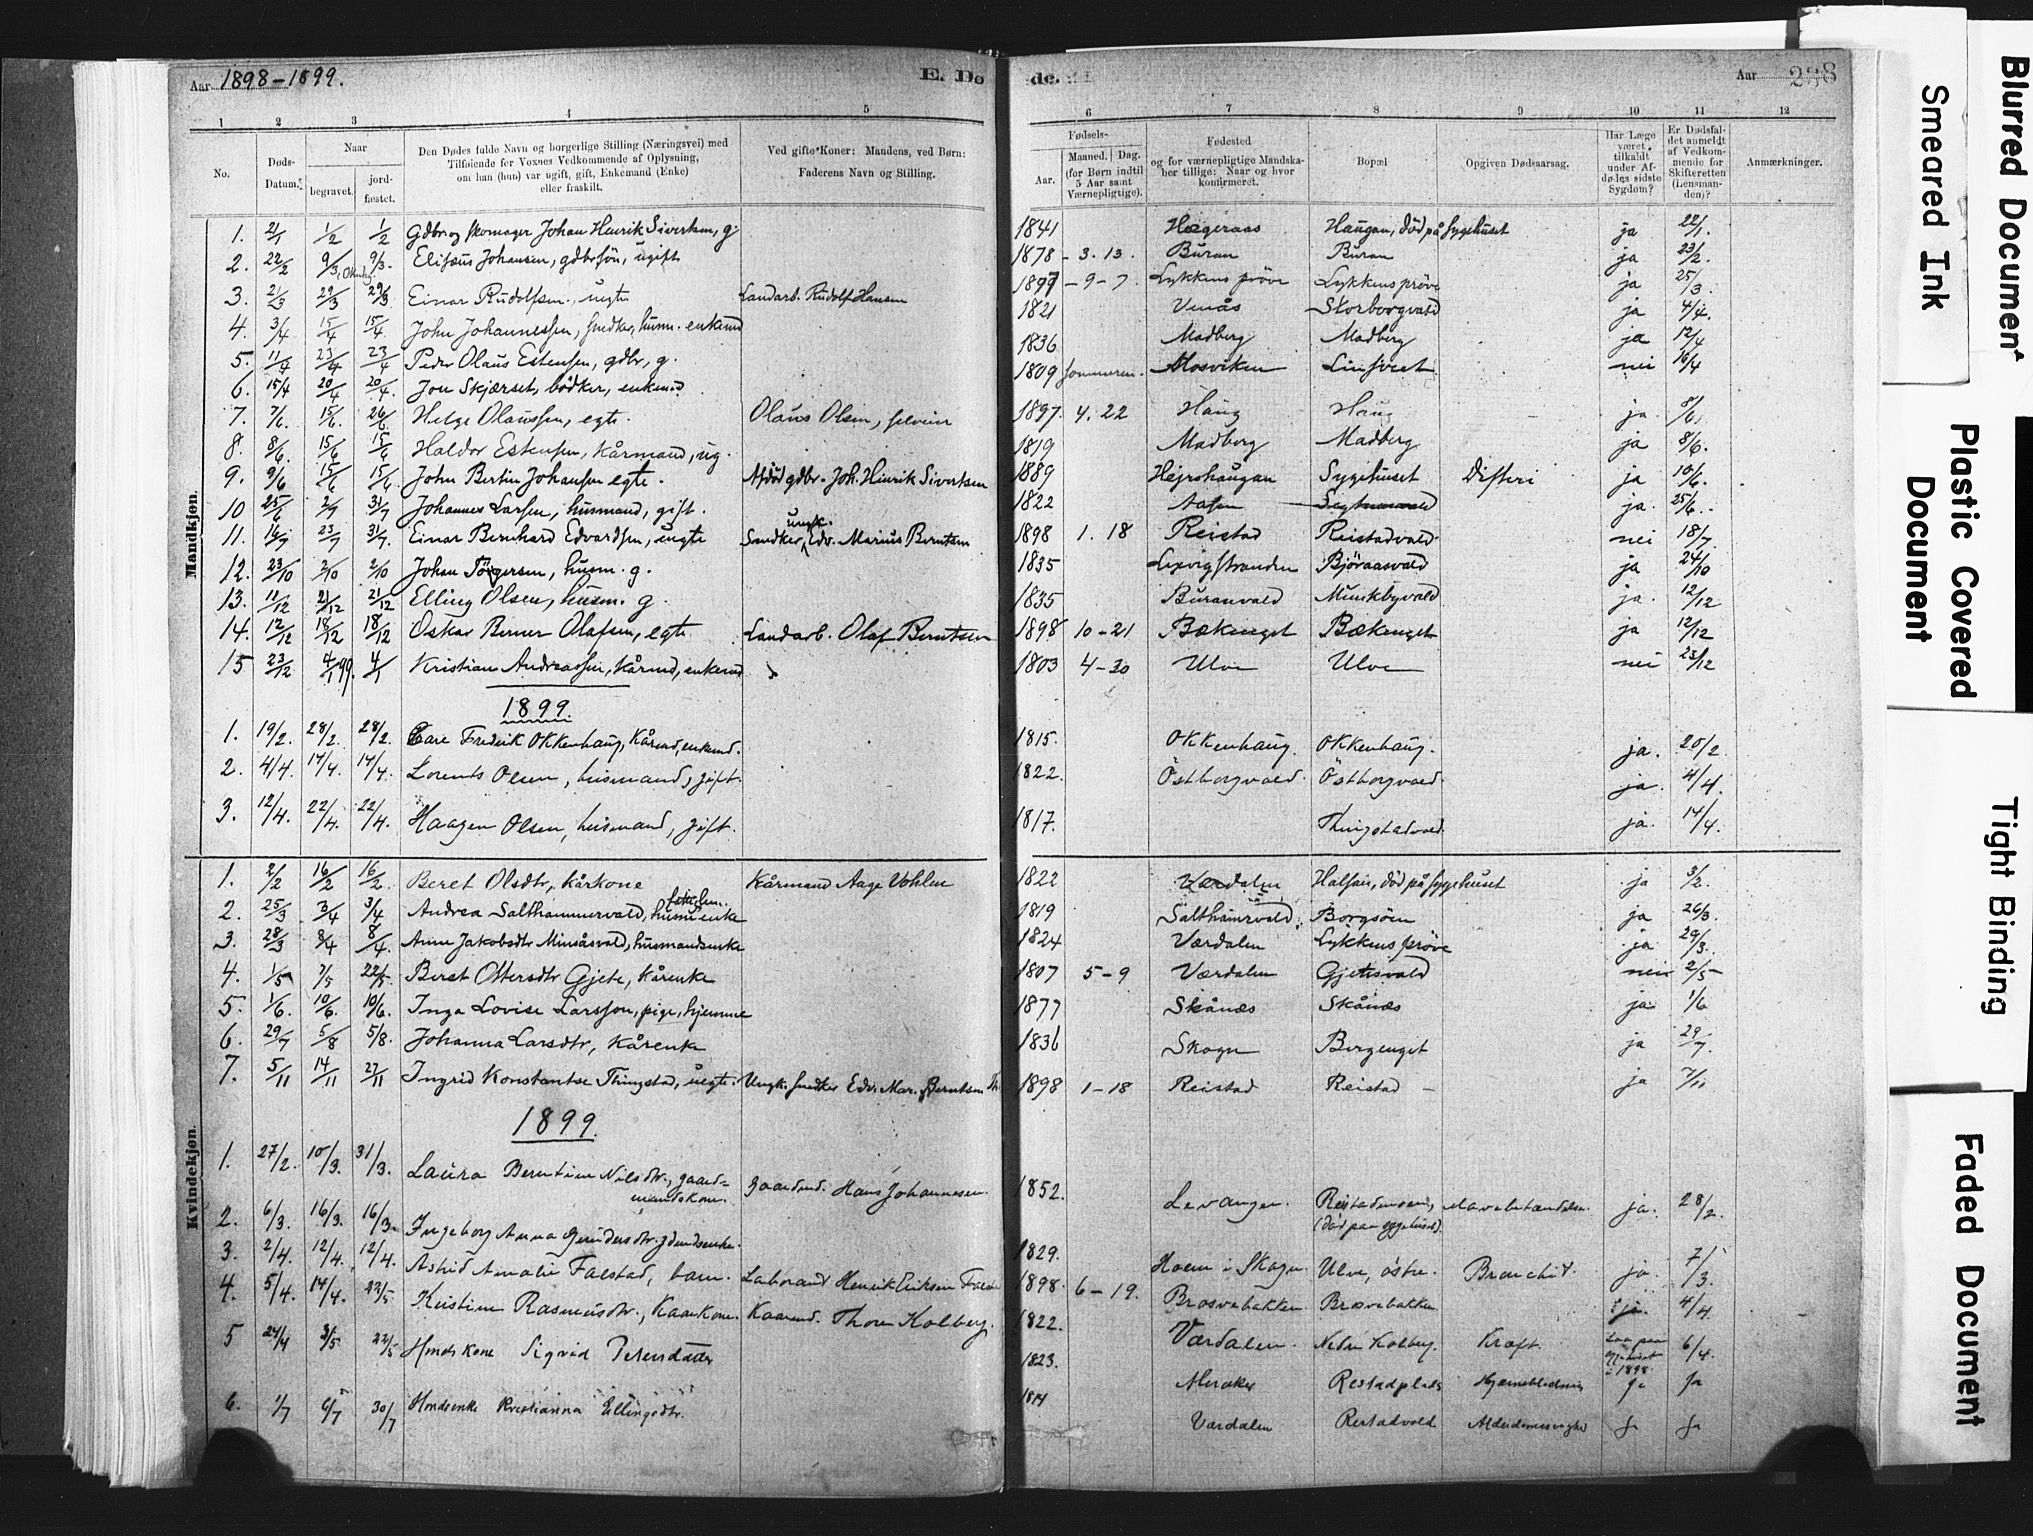 Aar 1898-1899.
E. Dø
de.
Aar 238
1 2 3 4 5
6 7 8 9 10 11 12
No.
Døds-
Datum.
Naar
begravet.
jord-
fæstet.
Den Dødes fulde Navn og borgerlige Stilling (Næringsvei) med
Tilføiende for Voxnes Vedkommende af Oplysning,
om han (hun) var ugift, gift, Enkemand (Enke)
eller fraskilt.
Ved gifte Koner: Mandens, ved Børn:
Faderens Navn og Stilling.
Fødsels-
Aar.
Maaned. Dag.
(for Børn indtil
5 Aar samt
Værnepligtige).
Fødested
og for værnepligtige Mandska-
ber tillige: Naar og hvor
konfirmeret.
Bopæl
Opgiven Dødsaarsag.
Har Læge
været
tilkaldt
under Af-
dødes sidste
Sygdom?
Er Dødsfal-
det anmeldt
af Vedkom-
mende for
Skifteretten
(Lensman-
den)?
Anmærkninger.
Mandkjøn.
1. 21/1 1/2 1/2 Gdbr og skomager Johan Henrik Sivertsen, g. 1841 Hegeraas Haugan, död på sygehuset ja 22/1.
2. 22/2 9/3 9/3. Elisæus Johansen, gdbrsön, ugift 1878 - 3. 13. Buran Buran ja 23/2.
3. 21/3 29/3 29/3 Einar Rudolfsen, uegte Landarb. Rudolf Hansen 1897 - 9 - 7 Lykkens pröve Lykkens pröve ja 25/3.
4. 3/4 15/4 15/4 John Johannessen, snedker, husm. enkemd 1821 Venås Storborgvald ja 4/4.
5. 11/4 23/4 23/4 Peder Olaus Estensen, gdbr, g. 1836 Madberg Madberg ja 12/4
6. 15/4 20/4 20/4. Jon Skjærset, bödker, enkemd 1809 sommeren Mosviken nei 16/4
7. 7/6. 15/6. 26/6 Helge Olaussen, egte. Olaus Olsen, selveier 1897. 4. 22 Haug Haug ja. 8/6.
8. 8/6. 15/6 15/6 Haldor Estensen, Kårmand, ug. 1819 Madberg Madberg ja 8/6.
9. 9/6 15/6 15/6 John Bertin Johansen egte. Afdöd gdbr. Joh. Hinrik Sivertsen 1889 Hejrshaugan Sygehuset Difteri ja 10/6.
10 25/6 2/7 31/7 Johannes Larsen, husmand, gift. 1822 Aasen ja. 25/6.
11. 16/7 23/7 31/7. Einar Bernhard Edvardsen, uegte Snedker, ungk. Edv. Marius Berntsen 1898 1. 18 Reistad Reistadvald nei 18/7
12. 23/10 2/10 2/10 Johan Törgersen, husm. g. 1835 Lexvigstranden Björaasvald ja 24/10
13. 11/12 21/12 21/12 Elling Olsen, husm. g. 1835 Buranvald Munkbyvald ja. 12/12
14. 12/12 18/12 18/12 Oskar Berner Olafsen, egte Landarb. Olaf Berntsen 1898 10-21 Bækenget Bækenget ja 12/12
15 23/12 4/1 99. 4/1 Kristian Andreassen, Kårmd, enkemd 1803 4-30 Ulve Ulve nei 23/12
1899.
1. 19/2. 28/2. 28/2. Care Fredrik Okkenhaug, Kårmd, enkemd. 1815. Okkenhaug. Okkenhaug. ja. 20/2.
2. 4/4. 14/4. 14/4. Lorents Olsen, husmand, gift. 1822. Östborgvald. Östborgvald. ja. 4/4.
3. 12/4. 22/4. 22/4. Haagen Olsen, husmand, gift. 1817. Thingstadvald. ja. 14/4.
Kvindekjøn.
1. 2/2 16/2 16/2. Beret Olsdtr, kårkone Kårmand Aage Vohlen 1822 Værdalen Halsan, död på sygehuset ja 3/2.
2. 25/3 3/4 3/4 Andrea Salthammervald, husmenke 1819 Salthamrvald. Borgsöen ja 26/3.
3. 28/3 8/4 8/4. Anne Jakobsdtr Minsåsvald, husmandsenke 1824 Værdalen Lykkens pröve ja 29/3.
4. 1/5 7/5 22/5. Beret Ottersdtr Gjete, Kårenke 1807 5-9 Værdalen Gjetesvald nei 2/5
5. 1/6. 10/6. 10/6. Inga Lovise Larsson, pige, hjemme 1877 Skånes Skånes ja 1/6
6. 29/7 5/8 5/8. Johanna Larsdtr, Kårenke 1836 Skogn Bergenget ja 29/7.
7. 5/11 14/11 27/11 Ingrid Konstantse Thingstad, uegte. Ungk. snedker Edv. Mar. Berntsen Th. 1898 1-18 Reistad Reistad - ja 7/11
1899.
1. 27/2. 10/3. 31/3. Laura Berntine Nilsdtr., gaard-
mandskone. Gaardmd. Hans Johannesen. 1852. Levanger. Reistadmoen, Mavebetændelse. ja. 28/2.
(död paa sygehuset).
2. 6/3. 16/3. 16/3. Ingeborg Anna 1829. Hoem i Skogn. Ulve, östre. Bronchit. ja. 7/3.
3. 2/4. 12/4. 12/4. Astrid Amalie Falstad, barn. Laborant Henrik Eriksen Falstad 1898. 6-19. Brosvebakken. Brosvebakken. ja. 4/4
4. 5/4. 14/4. 22/5 Kristine Rasmusdtr., Kaarkone. Kaarmd. Thore Kolberg. 1822. Værdalen. Nedre Kolberg. Kræft. Laa paa
sygehuset
i 1898 6/4.
5 24/4 3/5 22/5 Hmds kone Sigrid Petersdatter 1823. Meraker Restadplads Hjerneblødning ja ja
6. 1/7 6/7 30/7 Hmdsenke Kristianna Ellingsdtr. 1814 Værdalen Restadvald Alderdomssvaghed ja ja
Blurred Document
Smeared Ink
Plastic Covered
Document
Tight Binding
Faded Document